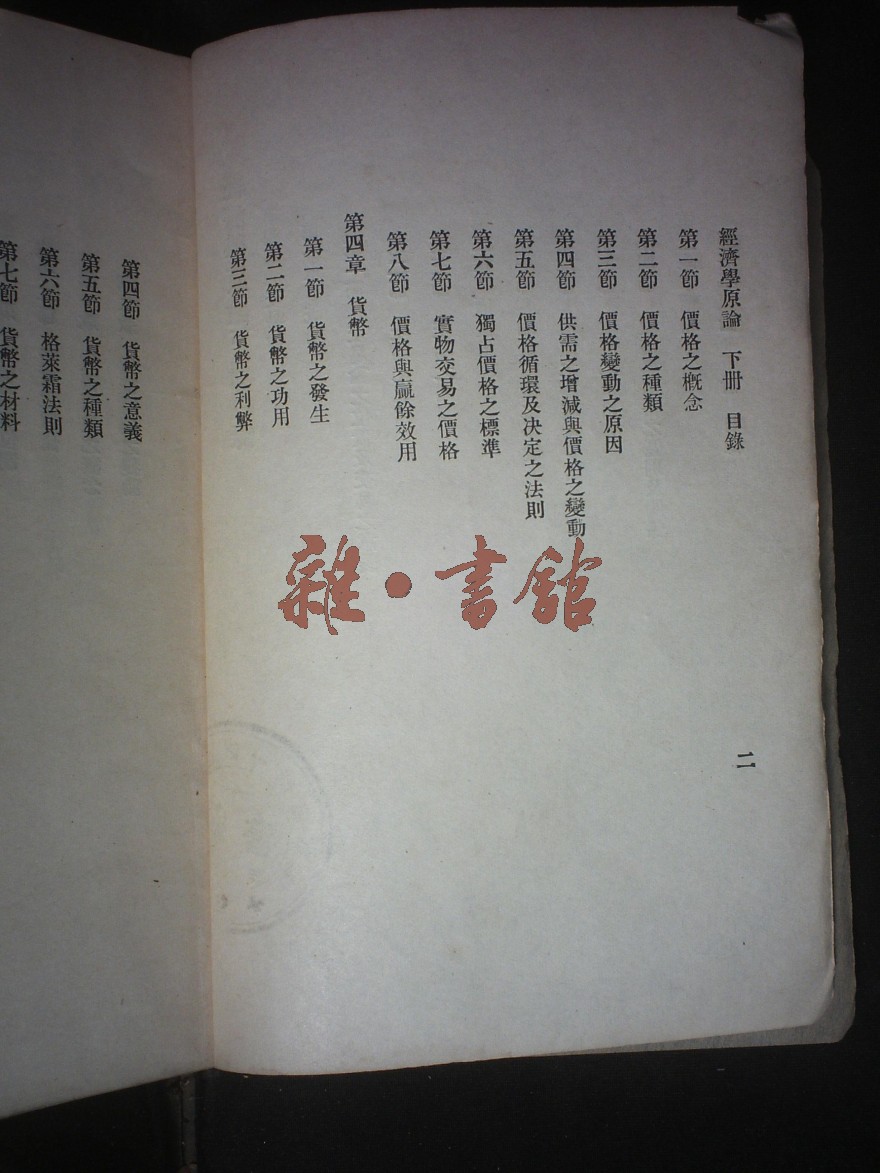 經濟學原論 下冊 目錄
二
第一節 價格之概念
第二節 價格之種類
第三節 價格變動之原因
第四節 供需之增減與價格之變動
第五節 價格循環及決定之法則
第六節 獨占價格之標準
第七節 實物交易之價格
第八節 價格與贏餘效用
第四章 貨幣
第一節 貨幣之發生
第二節 貨幣之功用
第三節 貨幣之利弊
第四節 貨幣之意義
第五節 貨幣之種類
第六節 格萊霜法則
第七節 貨幣之材料
雜·書館